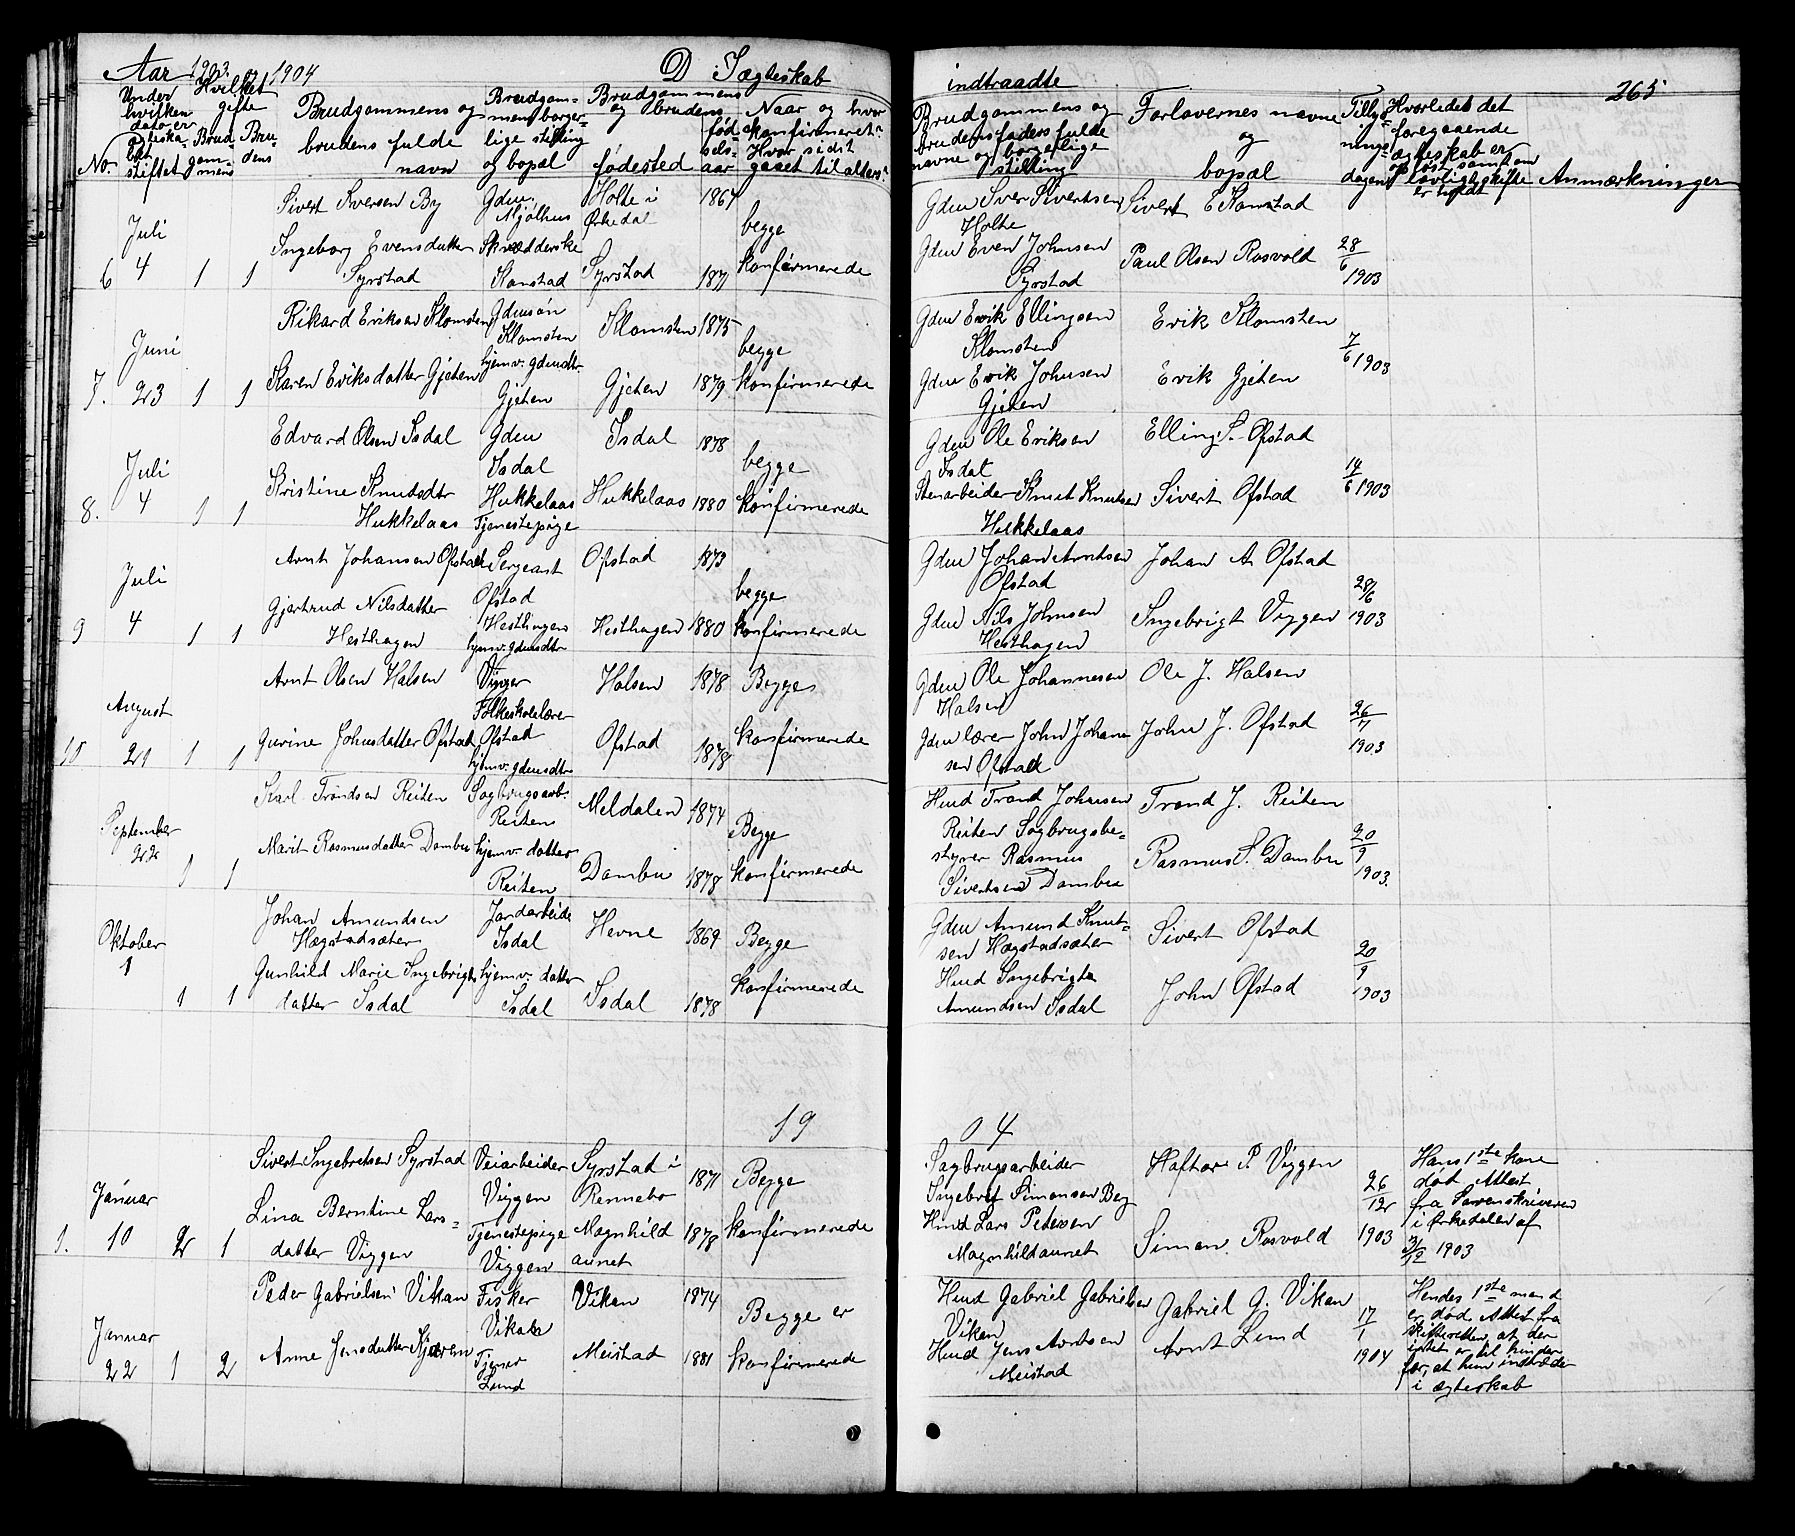 Aar 1903. og 1904
D I ægteskab
indtraadte
265
No.
Under hvilken dato er ægteska-bet stiftet
Hvilket gifte
Brud gom-mens
Bru-dens
Brudgommens og brudens fulde navn
Brudgom-mens borger-lige stilling og bopæl
Brudgommens og brudens
fødested
fød sels-aar
Naar og hvor konfirmeret? Hvor sidst gaaet til alters?
Brudgommens og brudens faders fulde navne og borgerlige stilling
Forlovernes navne og bopæl
Tillys-nings-dagen
Hvorledes det foregaaende ægteskab er opløst samt om lovlighgskifte er holdt
Anmærkninger
6 Juli 4 1 1
Sivert Iversen By
Gdm, Mjølhus
Holte i Ørkedal
1864
Ingeborg Evensdatter Syrstad
Skrædderske Kanstad
Syrstad
1871
begge konfirmerede
Gdm Iver Sivertsen Holte
Gdm Even Johnsen Syrstad
Sivert E Kanstad
Paul Olsen Rosvold
28/6 1903
7. Juni 23 1 1
Rikard Eriksen Klomsten
Gdmsøn Klomsten
Klomsten
1875
Karen Eriksdatter Gjeten
hjemv. gdmdtr Gjeten
Gjeten
1879
begge konfirmerede
Gdm Erik Ellingsen Klomsten
Gdm Erik Johnsen Gjeten
Erik Klomsten
Erik Gjeten
7/6 1903
8. Juli 4 1 1
Edvard Olsen Isdal
Gdm Isdal
Isdal
1878
Kristine Knutsdtr Hukkelaas
Hukkelaas Tjenestepige
Hukkelaas
1880
begge konfirmerede
Gdm Ole Eriksen Isdal
Stenarbeider Knut Knutsen Hukkelaas
Elling S. Ofstad
Sivert Ofstad
14/6 1903
9 Juli 4 1 1
Arnt Johansen Ofstad
Sergeant Ofstad
Ofstad
1873
Gjertrud Nilsdatter Hesthagen
Hesthagen hjemv. gdmsdtr
Hesthagen
1880
begge konfirmerede
Gdm Johan Arntsen Ofstad
Gdm Nils Johnsen Hesthagen
Johan A Ofstad
Ingebrigt Viggen
28/6 1903
10 August 21 1 1
Arnt Olsen Halsen
Vinger Folkeskolelærer
Halsen
1878
Gurine Johnsdatter Ofstad
Ofstad hjemv. gdmsdtr
Ofstad
1878
Begge konfirmerede
Gdm Ole Johannesen Halsen
Gdm lærer John Johansen Ofstad
Ole J. Halsen
John J. Ofstad
26/7 1903
September 22 1 1
Karl Trondsen Reiten
Sagbrugsarb. Reiten
Meldalen
1874
Marit Rasmusdatter Dambu
hjemv. datter Reiten
Dambu
1878
Begge konfirmerede
Hmd Trond Johnsen Reiten Sagbrugsbe-styrer Rasmus Sivertsen Dambu
Trond J. Reiten
Rasmus S. Dambu
20/9 1903.
Oktober 1 1 1
Johan Amundsen Hægstadsæter
Jordarbeide Isdal
Hevne
1869
Gunhild Marie Ingebrigts datter Isdal
hjemv. datter Isdal
Isdal
1878
Begge konfirmerede
Gdm Amund Knut-sen Hægstadsæter
Hmd Ingebrigt Amundsen Isdal
Sivert Ofstad
John Ofstad
20/9 1903
19 04
1. Januar 10 2 1
Sivert Ingebretsen Syrstad
Veiarbeider Viggen
Syrstad i Rennebo
1871
Lina Berntine Lars-datter Viggen
Tjenestepige Viggen
Magnhild aunet
1878
Begge konfirmerede
Sagbrugsarbeider Ingebret Simonsen Berg
Hmd Lars Petersen Magnhildaunet
Haftore P. Viggen
Simon Rosvold
26/12 1903
Hans 1ste kone død Attest fra Sorenskriveren i Ørkedalen af 31/12 1903
Januar 22 1 2
Peder Gabrielsen Vikan
Fisker Vikan
Vikan
1874
Anne Jensdatter Kjøren
Tjener Lund
Meistad
1881
Begge er konfirmerede
Hmd Gabriel Gabrielsen Vikan
Hmd Jens Arntsen Meistad
Gabriel G. Vikan
Arnt Lund
17/1 1904
Hendes 1ste mand er død. Attest fra skifteretten, at der intet er til hinder for, at hun indtræder i ægteskab